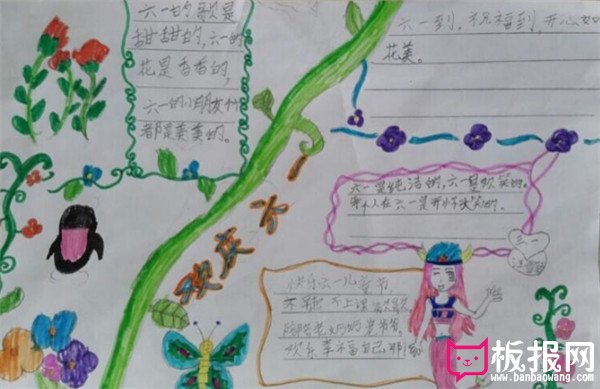 六一的歌是
甜甜的，六一的
花是香香的，
六一的小朋友们
都是美美的。
六一到，祝福到，开心如
花美。
六一是纯洁的，六一是欢笑的。
每个人在六一是开怀大笑的。
三一
欢庆六一
快乐六一儿童节，
不上课
欢乐幸福自己耶！
板报网
www.banbaowang.com